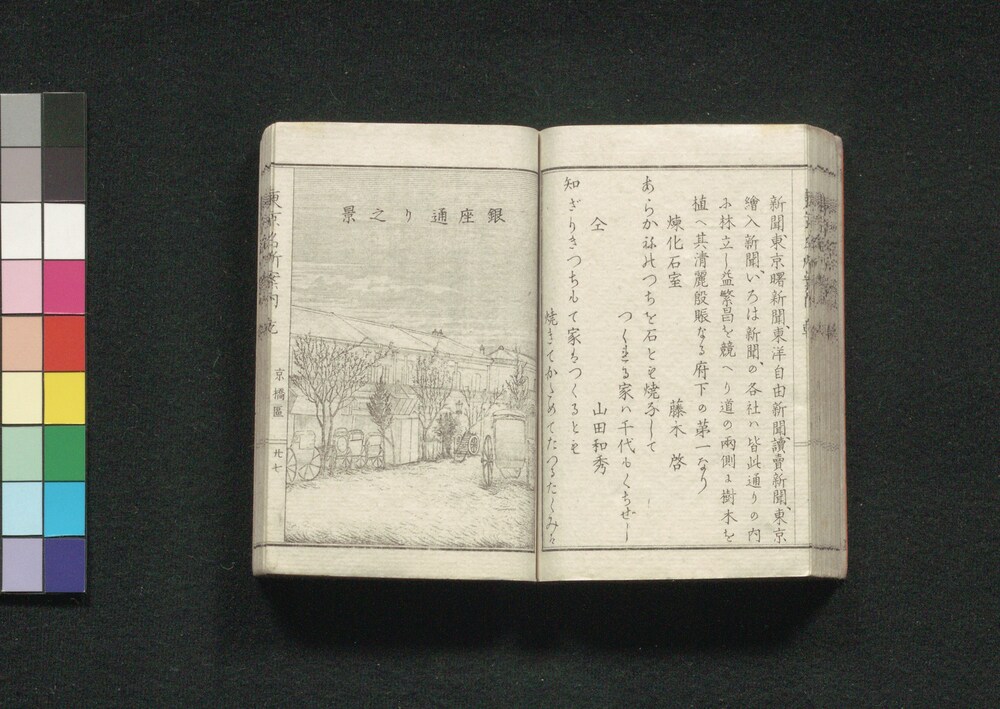 新聞、東京曙新聞、東洋自由新聞、讀賣新聞、東京
繪入新聞、いろは新聞、の各社ハ皆此通りの内
に林立し益繁昌を競へり道の兩側に樹木を
植へ其清麗殷賑なる府下の第一なり
煉化石室 藤木啓
あらかねのつちを石とも焼なして
つくれる家ハ千代もくちせし
仝 山田和秀
知ぎりきつちもて家をつくるとも
焼きてかためてたつるたくみを
銀座通り之景
東京名所案内
京橋區
廿七